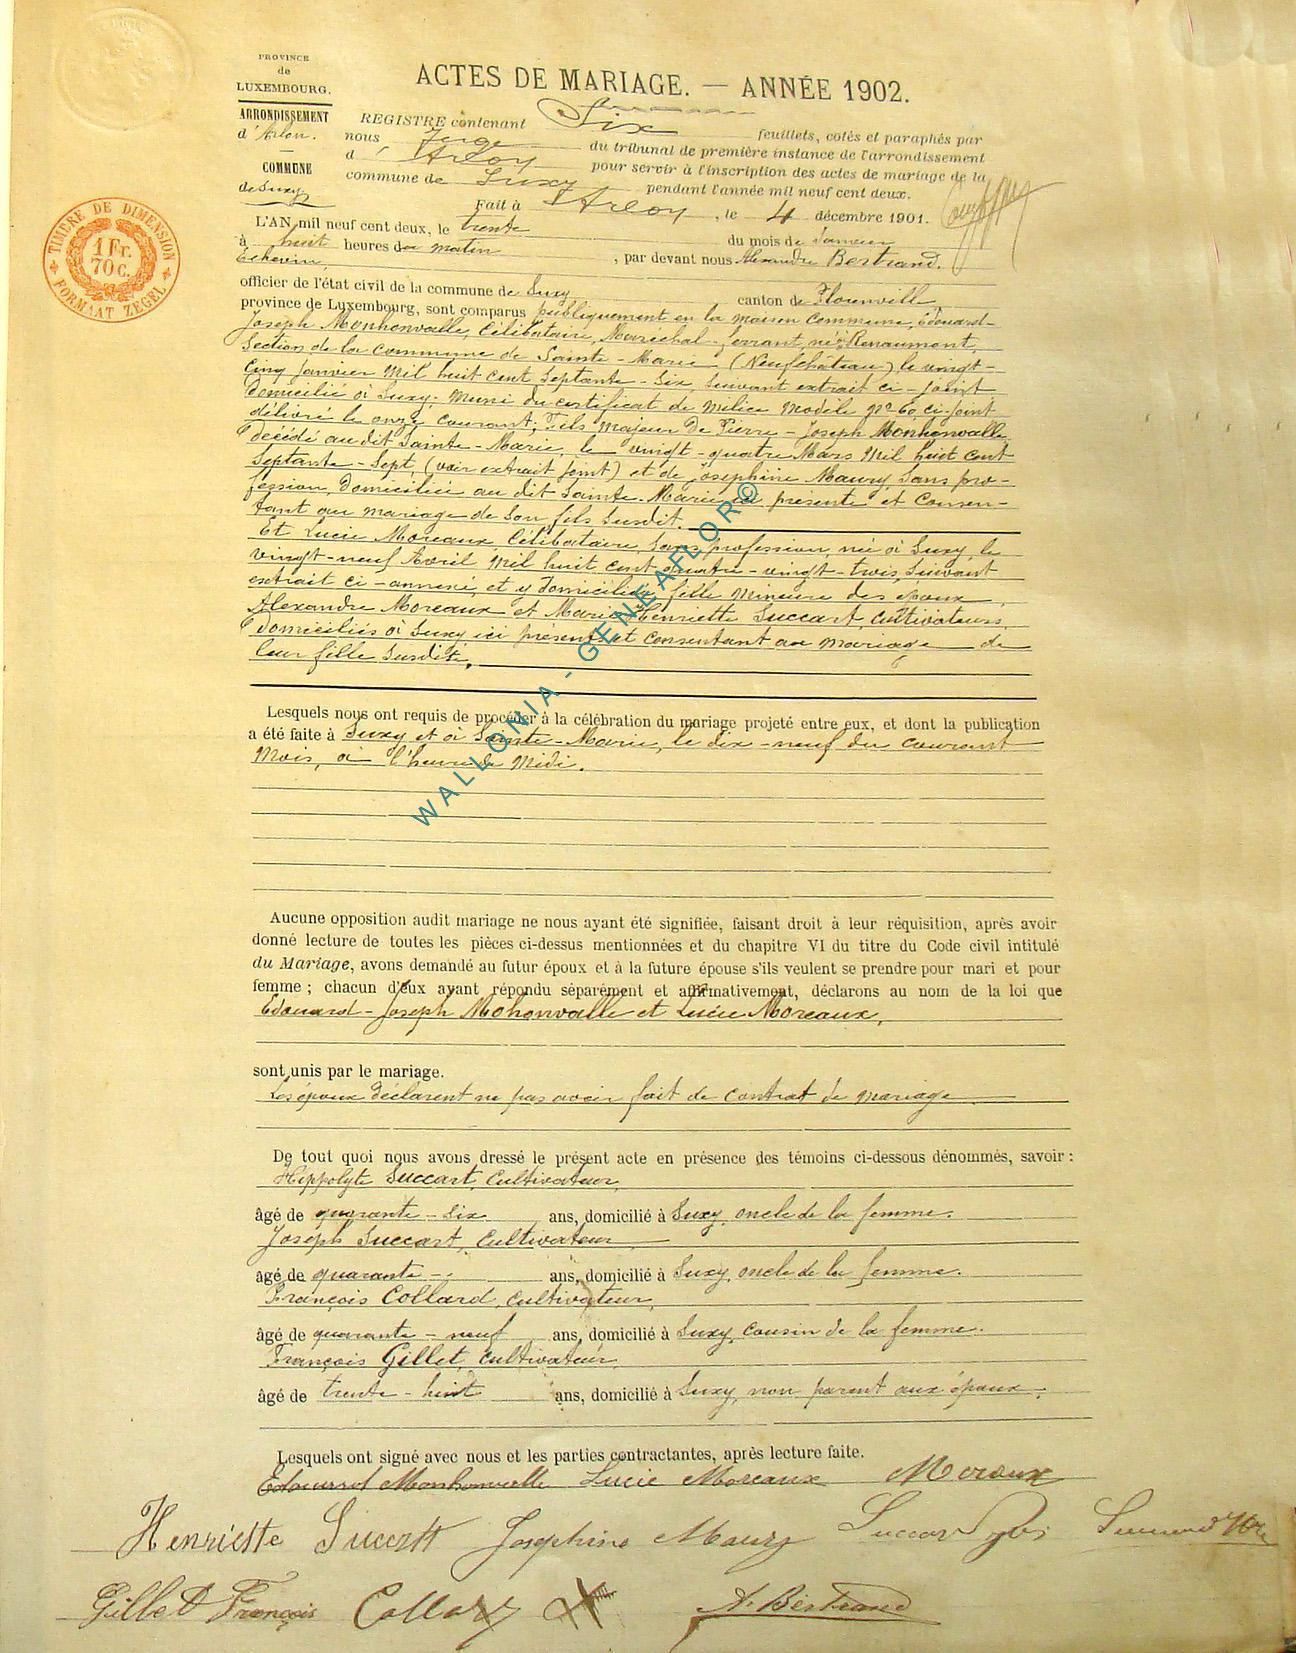 PROVINCE
de
LUXEMBOURG.
ARRONDISSEMENT
d'Arlon.
COMMUNE
de Suxy
TIMBRE DE DIMENSION
1 Fr.
70 C.
FORMAAT ZEGEL
ACTES DE MARIAGE. — ANNÉE 1902.
REGISTRE contenant Six feuillets, cotés et paraphés par
nous Juge du tribunal de première instance de l'arrondissement
d'Arlon pour servir à l'inscription des actes de mariage de la
commune de Suxy pendant l'année mil neuf cent deux.
Fait à Arlon, le 4 décembre 1901.
L'AN mil neuf cent deux, le trente du mois de Janvier
à huit heures du matin, par devant nous Alexandre Bertrand,
Echevin,
officier de l'état civil de la commune de Suxy canton de Florenville,
province de Luxembourg, sont comparus publiquement en la maison commune, Edouard-
Joseph Monhonvalle, Célibataire, Maréchal-ferrant, né à Renaumont,
Section de la commune de Sainte-Marie (Neufchâteau) le vingt-
Cinq Janvier Mil huit cent Septante-Six, Suivant extrait ci-joint
Domicilié à Suxy; Muni du certificat de Milice Modèle No 60, ci-joint
délivré le onze courant; Fils majeur de Pierre-Joseph Monhonvalle
décédé au dit Sainte-Marie, le vingt-quatre Mars Mil huit cent
Septante-Sept, (voir extrait joint) et de Josephine Maury, Sans pro-
fession, Domiciliée au dit Sainte-Marie ici présente et Consen-
tant au mariage de Son fils Susdit.
Et Lucie Moreaux Célibataire, Sans profession, née à Suxy, le
vingt-neuf Avril Mil huit cent quatre-vingt-trois, Suivant
extrait ci-annexé, et y Domiciliée, fille Mineure des époux
Alexandre Moreaux et Marie Henriette Succart, Cultivateurs,
Domiciliés à Suxy ici présents et consentant au mariage de
leur fille Susdite.
Lesquels nous ont requis de procéder à la célébration du mariage projeté entre eux, et dont la publication
a été faite à Suxy et à Sainte-Marie, le dix-neuf du courant
Mois, à l'heure de Midi.
Aucune opposition audit mariage ne nous ayant été signifiée, faisant droit à leur réquisition, après avoir
donné lecture de toutes les pièces ci-dessus mentionnées et du chapitre VI du titre du Code civil intitulé
du Mariage, avons demandé au futur époux et à la future épouse s'ils veulent se prendre pour mari et pour
femme ; chacun d'eux ayant répondu séparément et affirmativement, déclarons au nom de la loi que
Edouard-Joseph Mohonvalle et Lucie Moreaux,
sont unis par le mariage.
Les époux déclarent ne pas avoir fait de contrat de mariage
De tout quoi nous avons dressé le présent acte en présence des témoins ci-dessous dénommés, savoir :
Hippolyte Succart, Cultivateur,
âgé de quarante-six ans, domicilié à Suxy, oncle de la femme.
Joseph Succart, Cultivateur
âgé de quarante ans, domicilié à Suxy, oncle de la femme.
François Collard, cultivateur,
âgé de quarante-neuf ans, domicilié à Suxy, cousin de la femme.
François Gillet, cultivateur
âgé de trente-huit ans, domicilié à Suxy, non parent aux époux.
Lesquels ont signé avec nous et les parties contractantes, après lecture faite.
Edouard Monhonvalle Lucie Moreaux Moreaux
Henriette Succart Josephine Maury Succart
Gillet François Collard A. Bertrand
WALLONIA - GENEAFLOR©